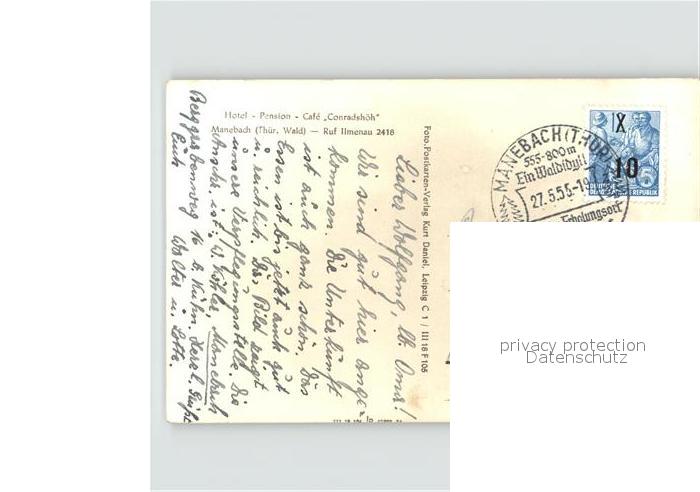 Hotel - Pension - Café „Conradshöh"
Manebach (Thür. Wald) — Ruf Ilmenau 2418
Foto.Postkarten-Verlag Kurt Daniel, Leipzig C 1 / III 18 F 106
Lieber Wolfgang, lb. Oma!
Wir sind gut hier ange-
kommen. Die Unterkunft
ist auch ganz schön. Das
Essen ist bis jetzt auch gut
u. reichlich. Das Bild zeigt
unsere Verpflegungsstelle. Die
Anschr. ist: W. Köhler, Manebach
16 b. Kühn. Herzl. Grüße
Euch Walter u. Lotte.
MANEBACH (THÜR)
555-800m
Ein Waldidyll
27.5.55
Erholungsort
X
10
DEUTSCHE
DEMOKRATISCHE REPUBLIK
privacy protection
Datenschutz